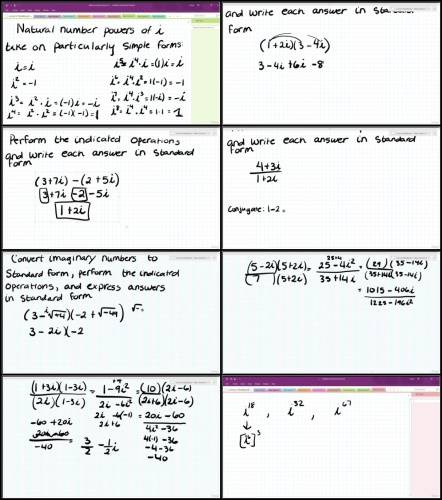 Natural number powers of i
take on particularly simple forms:
i = i
i² = -1
i³ = i² · i = (-1)i = -i
i⁴ = i² · i² = (-1)(-1) = 1
i⁵ = i⁴ · i = (1)i = i
i⁶ = i⁴ · i² = 1(-1) = -1
i⁷ = i⁴ · i³ = 1(-i) = -i
i⁸ = i⁴ · i⁴ = 1·1 = 1
and write each answer in
form
(1+2i)(3-4i)
3-4i+6i-8
Perform the indicated operations
and write each answer in standard
form
(3+7i) - (2+5i)
3+7i-2-5i
1+2i
and write each answer in standard
form
4+3i
1+2i
Conjugate: 1-2
Convert imaginary numbers to
standard form, perform the indicated
operations, and express answers
in standard form
(3-2i)(-2
(5-2i)(5+2i) = 25-4i² = (29)(35-14i)
(7 )(5+2i) 35+14i (35+14i)(35-14i)
= 1015-406i
1225-196i²
(1+3i)(1-3i) = 1-9i² = (10)(2i-6)
(2i)(1-3i) 2i-6i² (2i+6)(2i-6)
2i -6(-1) = 20i-60
2i+6 4i²-36
-60+20i
-40
= 3/2 - 1/2 i
4(-1)-36
-4-36
-40
i¹⁸, i³², i⁶⁷
↓